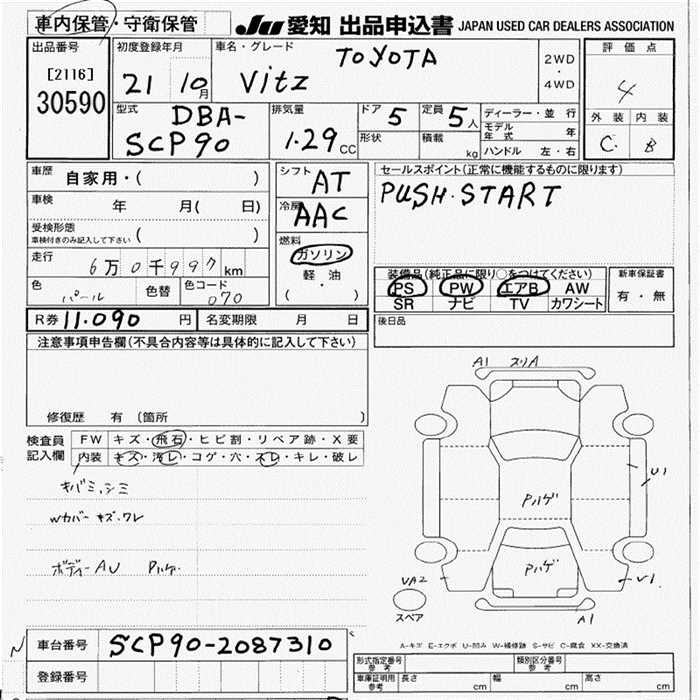 車内保管・守衛保管
JU 愛知 出品申込書 JAPAN USED CAR DEALERS ASSOCIATION
出品番号
[2116]
30590
初度登録年月
21 10月
車名・グレード
TOYOTA
Vitz
2WD
・
4WD
評価点
4
外装 内装
C B
型式
DBA-
SCP90
排気量
1.29 CC
ドア 5
定員 5人
形状
積載 kg
ディーラー・並行
モデル年式 年
ハンドル 左・右
車歴 自家用・( )
車検 年 月(日)
受検形態
車検付きのみ記入して下さい ( )
走行 6万0千997km
色 パール
色替
色コード 070
シフト AT
冷房 AAC
燃料
ガソリン
軽・油
( ・ )
セールスポイント(正常に機能するものに限ります)
PUSH・START
装備品(純正品に限り○をつけてください)
PS PW エアB AW
SR ナビ TV カワシート
新車保証書
有・無
R券 11.090 円
名変期限 月 日
後日品
注意事項申告欄(不具合内容等は具体的に記入して下さい)
修復歴 有 (箇所 )
検査員
記入欄
FW キズ・飛石・ヒビ割・リペア跡・X要
内装 キズ・汚レ・コゲ・穴・スレ・キレ・破レ
キバミ、シミ
Wカバー キズ、ワレ
ボディーAU Pハゲ
A1 スリA
U1
Pハゲ
Pハゲ
VA2
U1
スペア
A1
A-キズ E-エクボ U-凹み W-補修跡 S-サビ C-腐食 XX-交換済
車台番号 SCP90-2087310
登録番号
形式指定番号
参考
類別区分番号
参考
車庫証明用
参考
長さ cm 幅 cm 高さ cm